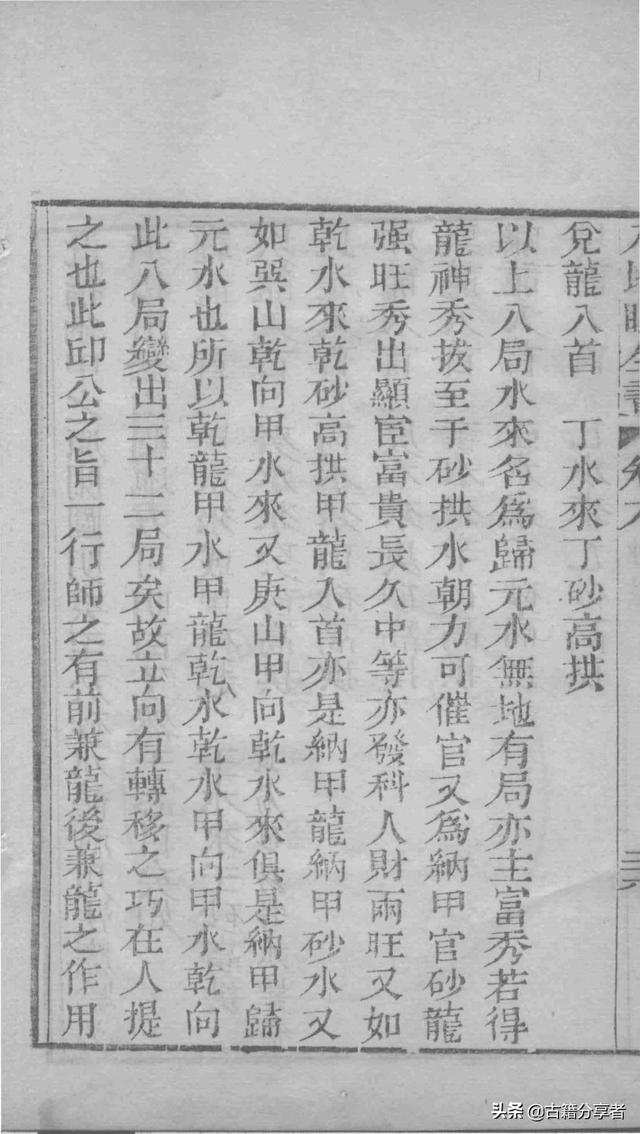 兌龍入首　丁水來丁砂高拱
以上八局水來名爲歸元水無地有局亦主富秀若得
龍神秀拔至于砂拱水朝力可催官又爲納甲官砂龍
强旺秀出顯宦富貴長久中等亦發科人財兩旺又如
乾水來乾砂高拱甲龍入首亦是納甲龍納甲砂水又
如巽山乾向甲水來又庚山甲向乾水來俱是納甲歸
元水也所以乾龍甲水甲龍乾水乾水甲向甲水乾向
此八局變出三十二局矣故立向有轉移之巧在人提
之也此邱公之旨一行師之有前兼龍後兼龍之作用
头条 @古籍分享者